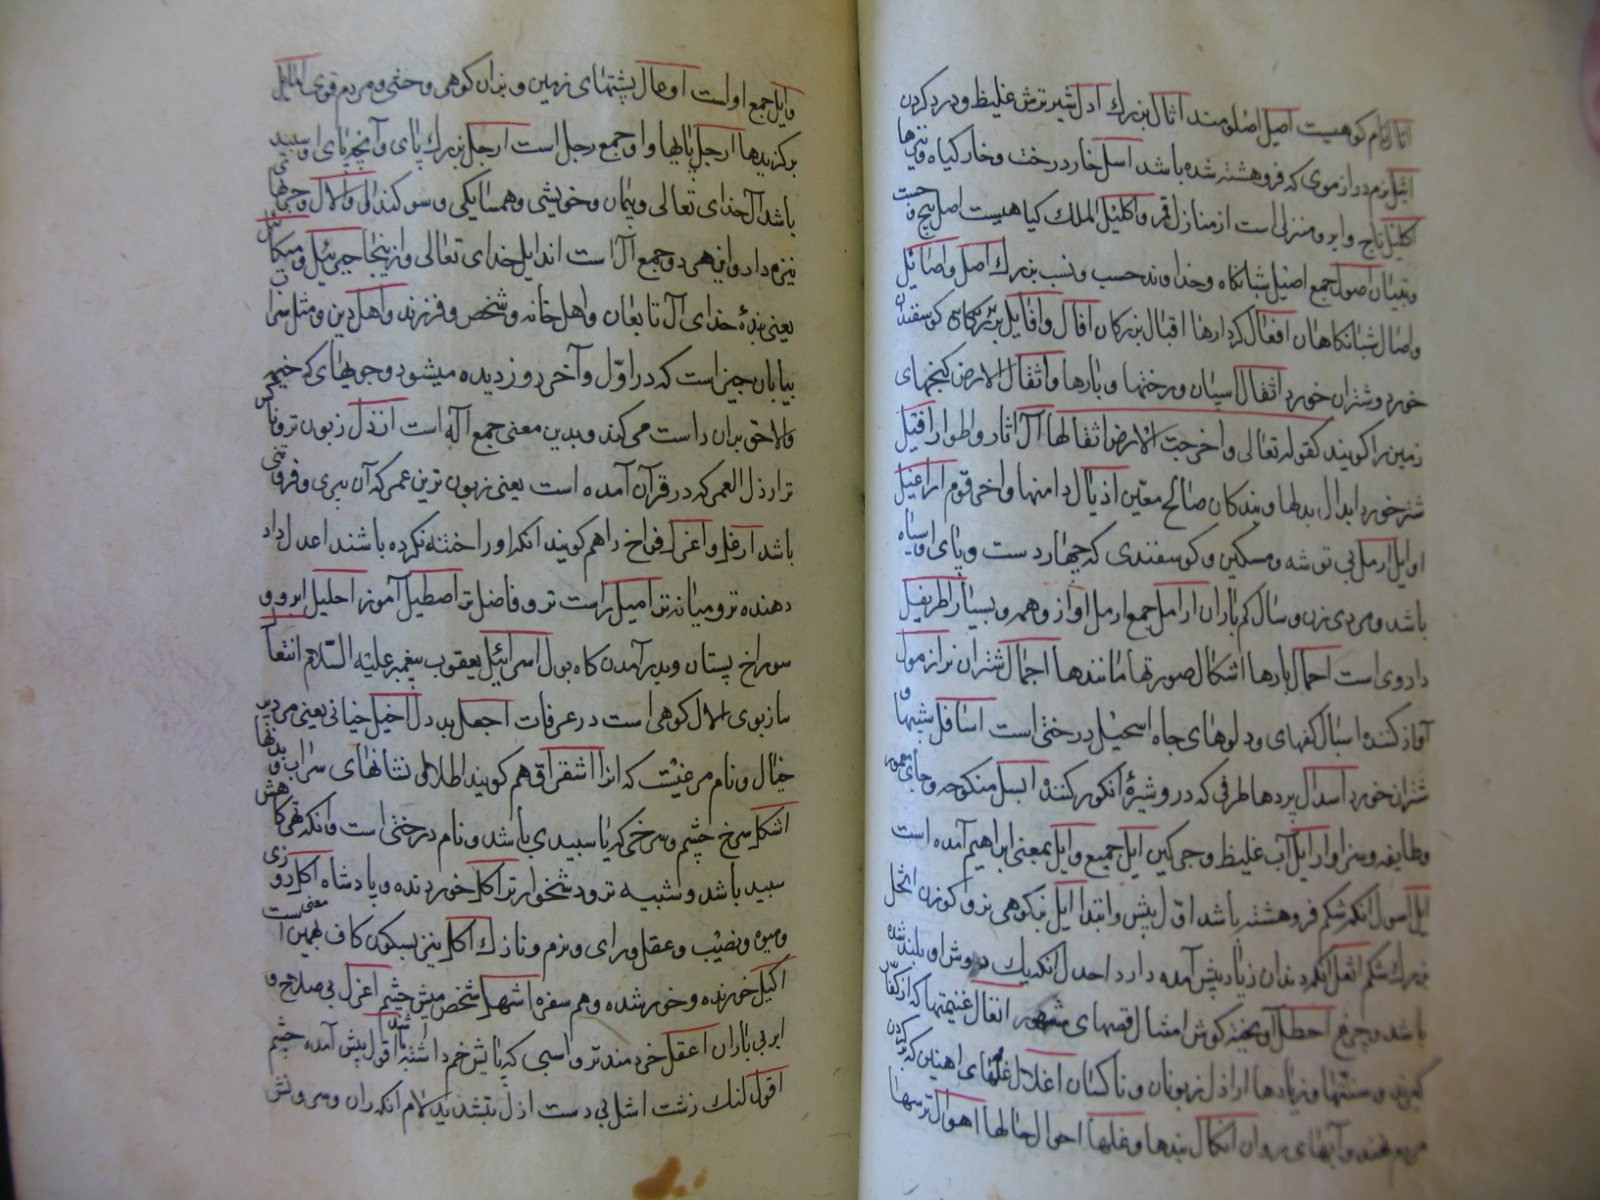 اثال نام کوهیست اصیل اصلومند اثال بزرك ادل شیر ترش غلیظ و درد کردن
اشل نرم دراز موی که فروهشته شده باشد اسل خار درخت و خار گیاه و نیزها
اکلیل تاج و ابر و منزلی است از منازل قمر و اکلیل الملك گیاهیست اصل بیخ و
اصول جمع اصیل شبانکاه و خداوند حسب و نسب بزرك اصل و اصائل
و اصال شبانکاهان افعال کردارها اقبال بزرکان افال و افایل کوسفندان
خورد و شتران خورد اثقال سپان و رختها و بارها و اثقال الارض کنجهای
زمین را گویند کقوله تعالی و اخرجت الارض اثقالها آل اثار و اطوار افیل
شتر خورد ابدال بدلها و بندکان صالح معین اذیال دامنها و اخر قوم اراعیل
اوایل ارمل بی توشه و مسکین و کوسفندی که چهار دست و پای او سیاه
باشد و مرد بی زن و سال کم باران ارامل جمع ارمل اواز و همه و بسیار اطریفل
داروی است احمال بارها اشکال صورتها مانندها اجمال شتران نر ازمول
آواز کننده اسبال کفهای و دلوهای چاه اسحیل درختی است اسافل شیبها و
شتران خورد اسدال پردها طرفی که در و شیرهٔ انکور کنند ابسل منکوحه و جای معمور
و طایفه و سزاوار ایل آب غلیظ و چرکین ایل جمیع و ایل بمعنی ابراهیم آمده است
ایل اسول انکه شکم فروهشته باشد اول پیش و ابتدا ایل بز کوهی نر و کوزن اثجل
بزرك شکم اثعل انکه دندان زیاد پیش آمده دارد احدل انکه یك دوش او بلند شده
باشد و چرغ احطل آویخته کوش امثال قصهای مشهور انفال غنیمتها که از کفار
کیرند و سنتها و زیادها اراذل زبونان و ناکسان اغلال غلهای اهنین که بر کردن
مردم نهند و آبهای روان انکال بندها و غلها احوال حالها اهوال ترسها
و ایل جمع او است اوعال پشتهای زمین و بزان کوهی وحشی و مردم قوی اماثل
برکزیدها ارجل پایها و او جمع رجل است ارجل بزرك پای و آنچه پای او سپید
باشد آل خدای تعالی و پیمان و خویشی و همسایکی و سوکند ال و الال و حربها
نیزه دار و این هر دو جمع آل است اند ایل خدای تعالی و ازینجا جبرئیل و میکائیل
یعنی بندهٔ خدای آل تابعان و اهل خانه و شخص و فرزند و اهل دین و مثل سرا
بیابان چیز است که در اول و آخر روز دیده میشود و چوبهای که خیمه
بران راست می کند و بدین معنی جمع آله است ارذل زبون تر و ناکس
تر ارذل العمر که در قرآن آمده است یعنی زبون ترین عمر که آن پیری و فرتوتی
باشد ارغل و اغرل فراخ را هم گویند انکه او را ختنه نکرده باشند اعدل داد
دهنده تر و میانه تر امیل راست تر و فاضل تر اصطیل آموز احلیل ابرو و
سوراخ پستان و بدر آمدن کاه بول اسرائیل یعقوب پیغمبر علیه السلام
الال کوهی است در عرفات اجعل بددل اخیل خیانی یعنی مرد پر
خیال و نام مرغیست که انرا اشقراق هم گویند اطلال نشانهای سراب و بدنها
اشکل سرخ چشم و سرخی که با سپیدی باشد و نام درختی است و انکه تهی کاهش
سپید باشد و شبیه تر و دشخوارتر اکل خورنده و پادشاه اکل روزی
و میوه و نصیب و عقل و رای و نرم و نازك اکل نیز بسکون کاف بهمین معنی است
اکیل خورنده و خورشده و هم سفره اشهل شخص میش چشم اعزل بی صلاح و
ابر بی باران اعقل خردمند تر و اسپی که پایش خم داشته باشد اقول پیش آمده چشم
اقول لنك زشت اشل بی دست ازل بتشدید لام انکه ران و سرونش